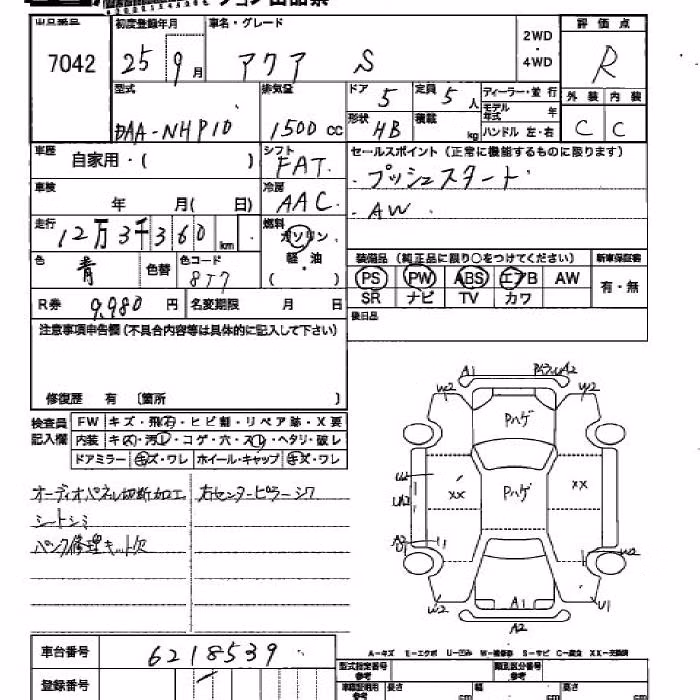 出品番号 初度登録年月 車名・グレード 2WD・4WD 評価点
7042 25 9月 アクア S R
型式 排気量 ドア 5 定員 5人 ディーラー・並行 外装 内装
DAA-NHP10 1500 cc 形状 HB 積載 kg モデル年式 年 C C
ハンドル 左・右
車歴 自家用・( ) シフト FAT セールスポイント (正常に機能するものに限ります)
・プッシュスタート
車検 年 月( 日) 冷房 AAC ・AW
走行 12万3千360 km 燃料 ガソリン・軽油 ( )
色 青 色替 色コード 8T7
装備品 (純正品に限り○をつけてください) 新車保証書
PS PW ABS エアB AW 有・無
SR ナビ TV カワ
R券 9,980 円 名変期限 月 日
後日品
注意事項申告欄 (不具合内容等は具体的に記入して下さい)
修復歴 有 〔箇所 〕
検査員記入欄 FW キズ・飛石・ヒビ割・リペア跡・X要
内装 キズ・汚レ・コゲ・穴・スレ・ヘタリ・破レ
ドアミラー キズ・ワレ ホイール・キャップ キズ・ワレ
オーディオパネル切断加工 右センターピラーシワ
シートシミ
パンク修理キット欠
A1 A2
W2 W2
Pハゲ
U2 XX Pハゲ XX
W2
W2 A1 U1
A2
A-キズ E-エクボ U-凹み W-補修跡 S-サビ C-腐食 XX-交換済
車台番号 6218539
型式指定番号 参考 類別区分番号 参考
登録番号
車検証明用 参考 長さ cm 幅 cm 高さ cm